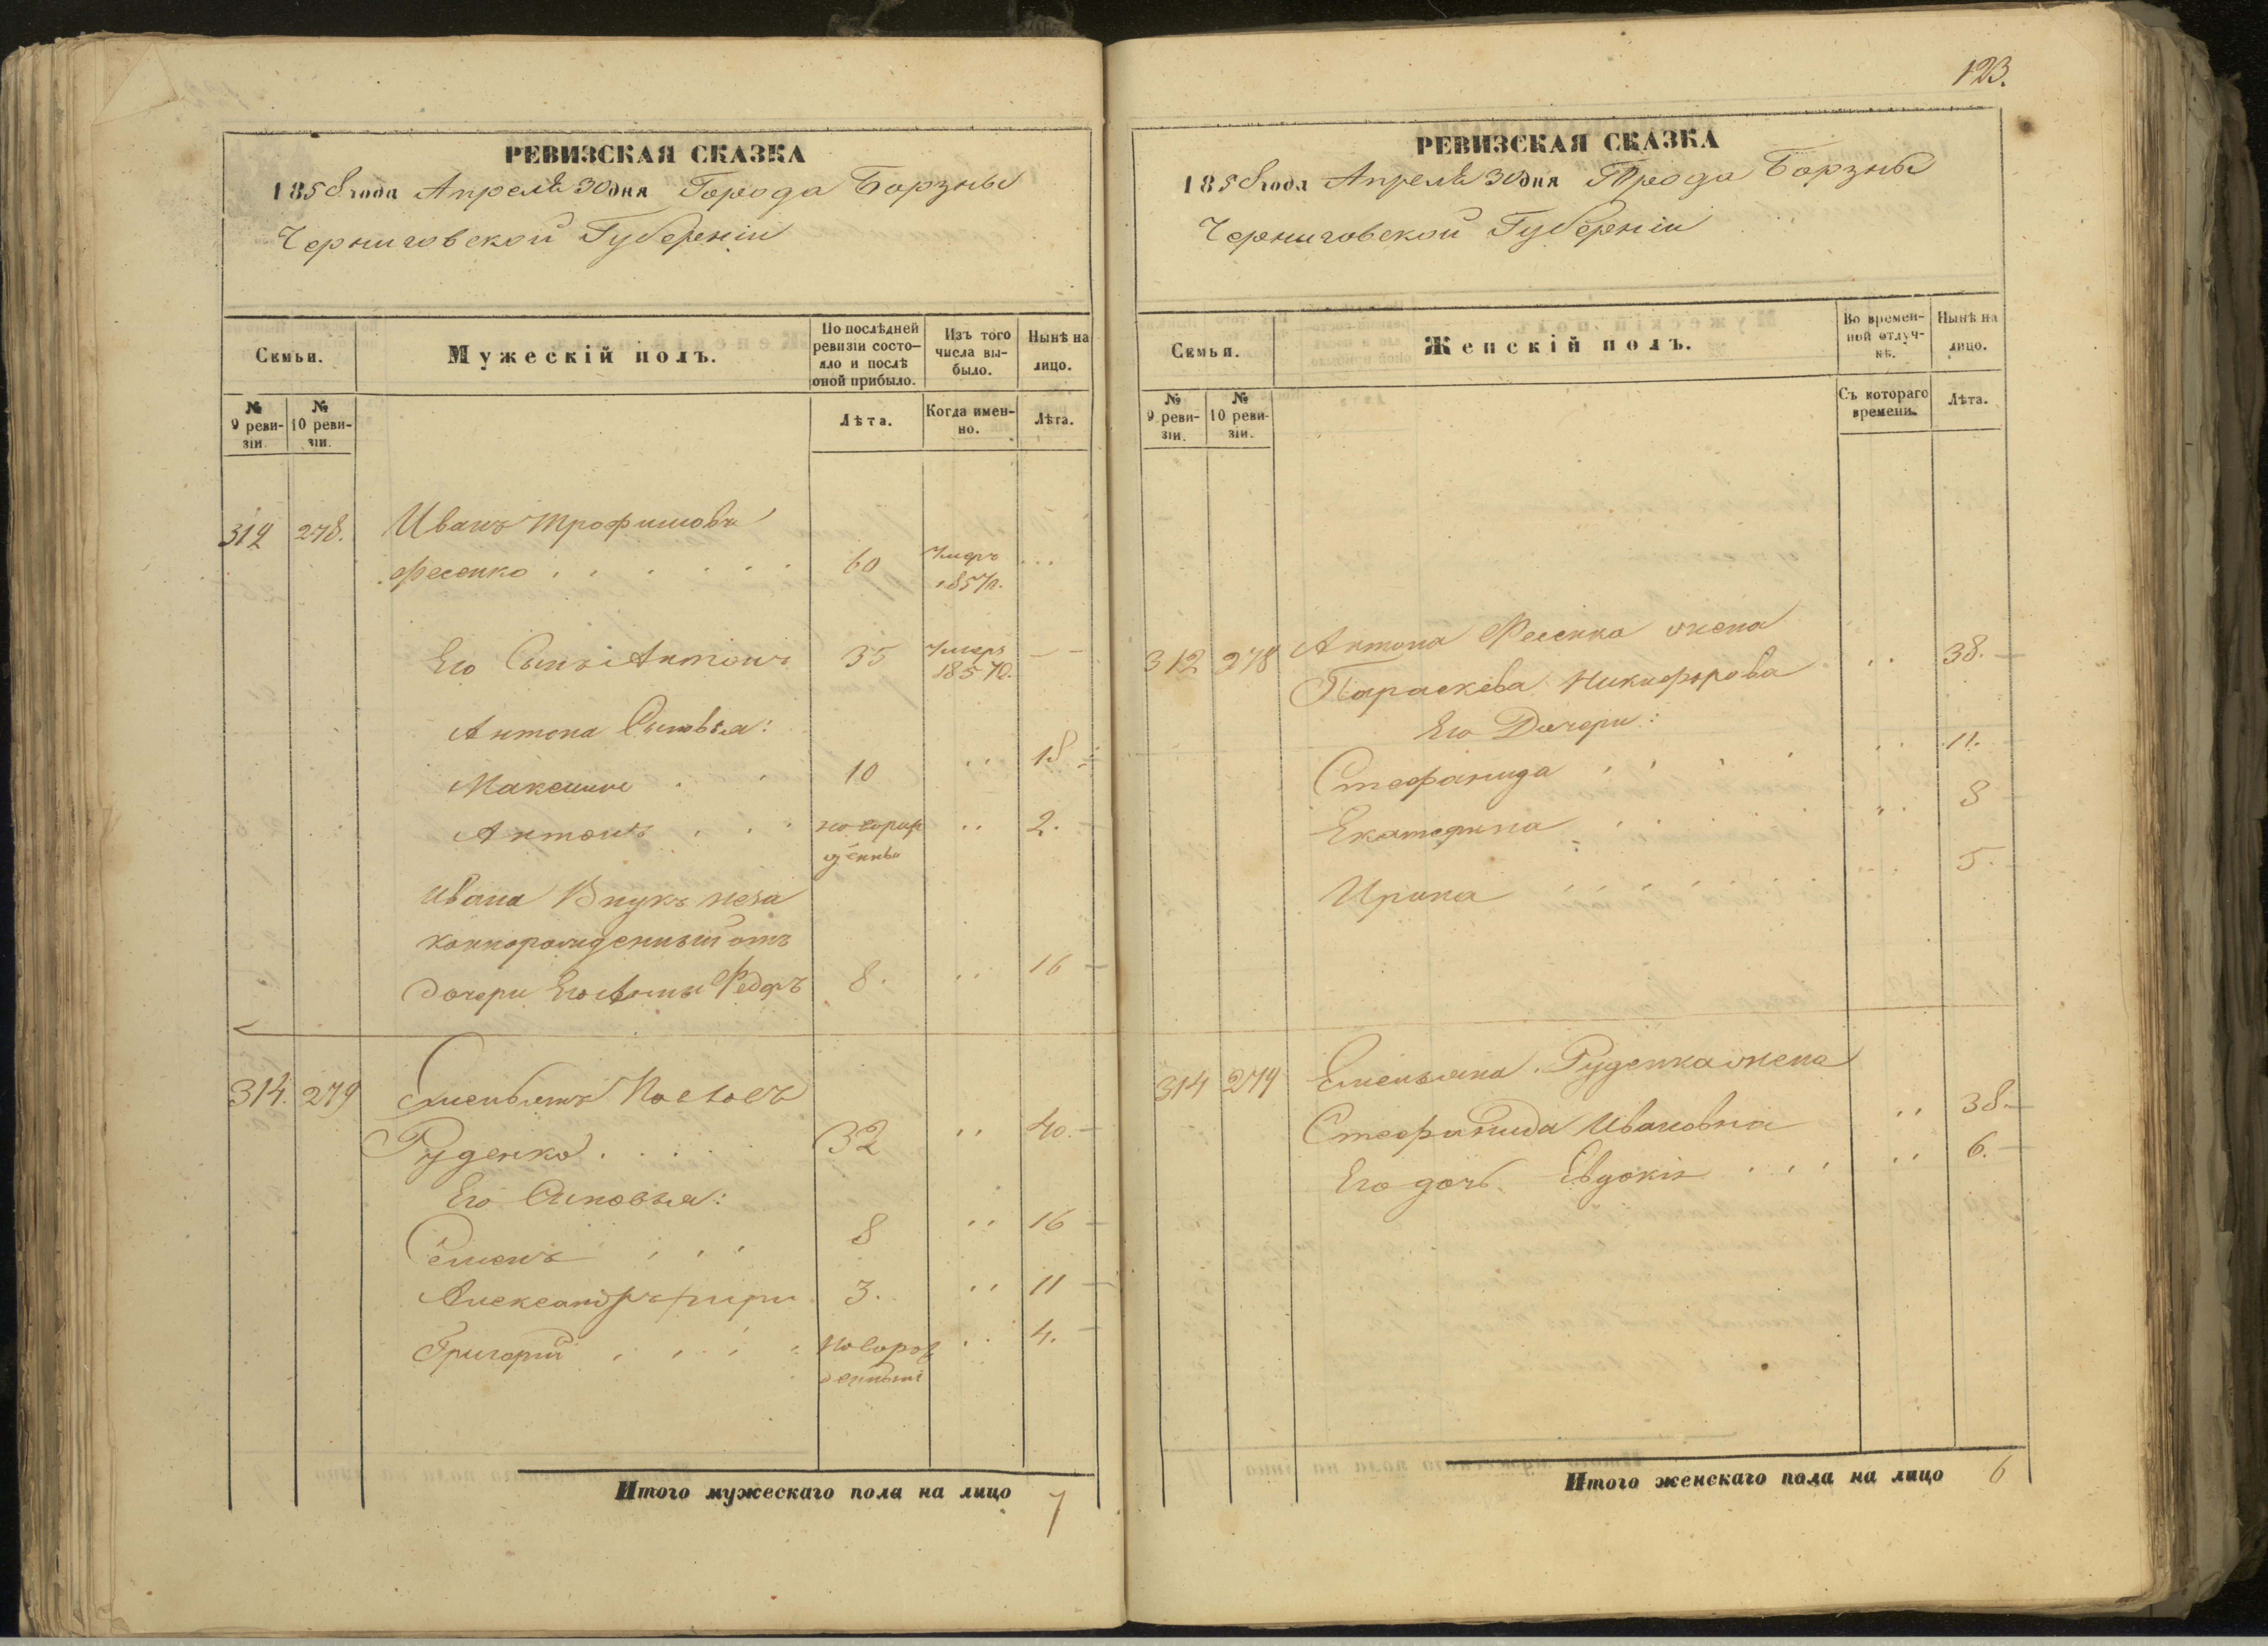 РЕВИЗСКАЯ СКАЗКА
1858 года Апреля 30 дня Города Борзны
Черниговской Губерніи
Семьи.
Мужескій полъ.
По послѣдней ревизіи состояло и послѣ оной прибыло.
Изъ того числа выбыло.
Нынѣ на лицо.
№ 9 ревизіи.
№ 10 ревизіи.
Лѣта.
Когда именно.
Лѣта.
312 278. Иванъ Трофимовъ
Фесенко . . . . . . 60 Умеръ 1857 г. ...
Его Сынъ: Антонъ 35 Умеръ 1857 г. — —
Антона Сыновья:
Максимъ . . 10 .. 18 —
Антонъ . . . новорожденный .. 2. —
Ивана Внукъ неза
коннорожденный отъ
дочери Его Федоръ 8. .. 16 —
314. 279 Емельянъ
Руденко . . . . 32 .. 40. —
Его Сыновья:
Семенъ . . . 8 .. 16 —
Александръ 3. .. 11 —
Григорій . . . . новорожденный .. 4. —
Итого мужескаго пола на лицо 7
123.
РЕВИЗСКАЯ СКАЗКА
1858 года Апреля 30 дня Города Борзны
Черниговской Губерніи
Семьи.
Женскій полъ.
Во временной отлучкѣ.
Нынѣ на лицо.
№ 9 ревизіи.
№ 10 ревизіи.
Съ котораго времени.
Лѣта.
312 278 Антона Фесенка жена
Параскева Никифорова .. 38. —
Его Дочери:
Стефанида . . . . .. 11. —
Екатерина . . . . .. 8 —
Ирина . . . . . . . ... 5. —
314 279 Емельяна Руденка жена
Стефанида Ивановна .. 38. —
Его дочь Евдокія . . . .. 6. —
Итого женскаго пола на лицо 6